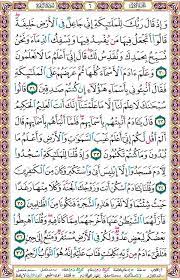 وَإِذْ قَالَ رَبُّكَ لِلْمَلَٰٓئِكَةِ إِنِّي جَاعِلٌ فِي ٱلْأَرْضِ خَلِيفَةً
قَالُوٓا۟ أَتَجْعَلُ فِيهَا مَن يُفْسِدُ فِيهَا وَيَسْفِكُ ٱلدِّمَآءَ وَنَحْنُ
نُسَبِّحُ بِحَمْدِكَ وَنُقَدِّسُ لَكَ قَالَ إِنِّيٓ أَعْلَمُ مَا لَا تَعْلَمُونَ ٣٠
وَعَلَّمَ ءَادَمَ ٱلْأَسْمَآءَ كُلَّهَا ثُمَّ عَرَضَهُمْ عَلَى ٱلْمَلَٰٓئِكَةِ
فَقَالَ أَنۢبِـُٔونِي بِأَسْمَآءِ هَٰٓؤُلَآءِ إِن كُنتُمْ صَٰدِقِينَ ٣١ قَالُوا۟
سُبْحَٰنَكَ لَا عِلْمَ لَنَآ إِلَّا مَا عَلَّمْتَنَآ إِنَّكَ أَنتَ ٱلْعَلِيمُ ٱلْحَكِيمُ ٣٢
قَالَ يَٰٓـَٔادَمُ أَنۢبِئْهُم بِأَسْمَآئِهِمْ فَلَمَّآ أَنۢبَأَهُم بِأَسْمَآئِهِمْ قَالَ
أَلَمْ أَقُل لَّكُمْ إِنِّيٓ أَعْلَمُ غَيْبَ ٱلسَّمَٰوَٰتِ وَٱلْأَرْضِ وَأَعْلَمُ مَا
تُبْدُونَ وَمَا كُنتُمْ تَكْتُمُونَ ٣٣ وَإِذْ قُلْنَا لِلْمَلَٰٓئِكَةِ ٱسْجُدُوا۟
لِـَٔادَمَ فَسَجَدُوٓا۟ إِلَّآ إِبْلِيسَ أَبَىٰ وَٱسْتَكْبَرَ وَكَانَ مِنَ ٱلْكَٰفِرِينَ ٣٤
وَقُلْنَا يَٰٓـَٔادَمُ ٱسْكُنْ أَنتَ وَزَوْجُكَ ٱلْجَنَّةَ وَكُلَا مِنْهَا رَغَدًا
حَيْثُ شِئْتُمَا وَلَا تَقْرَبَا هَٰذِهِ ٱلشَّجَرَةَ فَتَكُونَا مِنَ ٱلظَّٰلِمِينَ ٣٥
فَأَزَلَّهُمَا ٱلشَّيْطَٰنُ عَنْهَا فَأَخْرَجَهُمَا مِمَّا كَانَا فِيهِ وَقُلْنَا ٱهْبِطُوا۟
بَعْضُكُمْ لِبَعْضٍ عَدُوٌّ وَلَكُمْ فِي ٱلْأَرْضِ مُسْتَقَرٌّ وَمَتَٰعٌ إِلَىٰ حِينٍ ٣٦
فَتَلَقَّىٰٓ ءَادَمُ مِن رَّبِّهِۦ كَلِمَٰتٍ فَتَابَ عَلَيْهِ إِنَّهُۥ هُوَ ٱلتَّوَّابُ ٱلرَّحِيمُ ٣٧